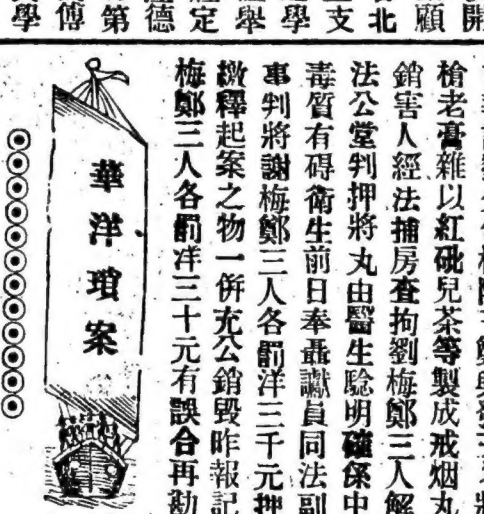 開
顧
北
支
學
舉
定
德
第
傅
學
槍老膏雜以紅砒兒茶等製成戒烟丸
銷害人經法捕房查拘劉梅鄭三人解
法公堂判押將丸由醫生騐明確係中
毒質有碍衛生前日奉聶讞員同法副
事判將謝梅鄭三人各罰洋三千元押
繳釋起案之物一併充公銷毀昨報記
梅鄭三人各罰洋三十元有誤合再勘
華洋瑣案